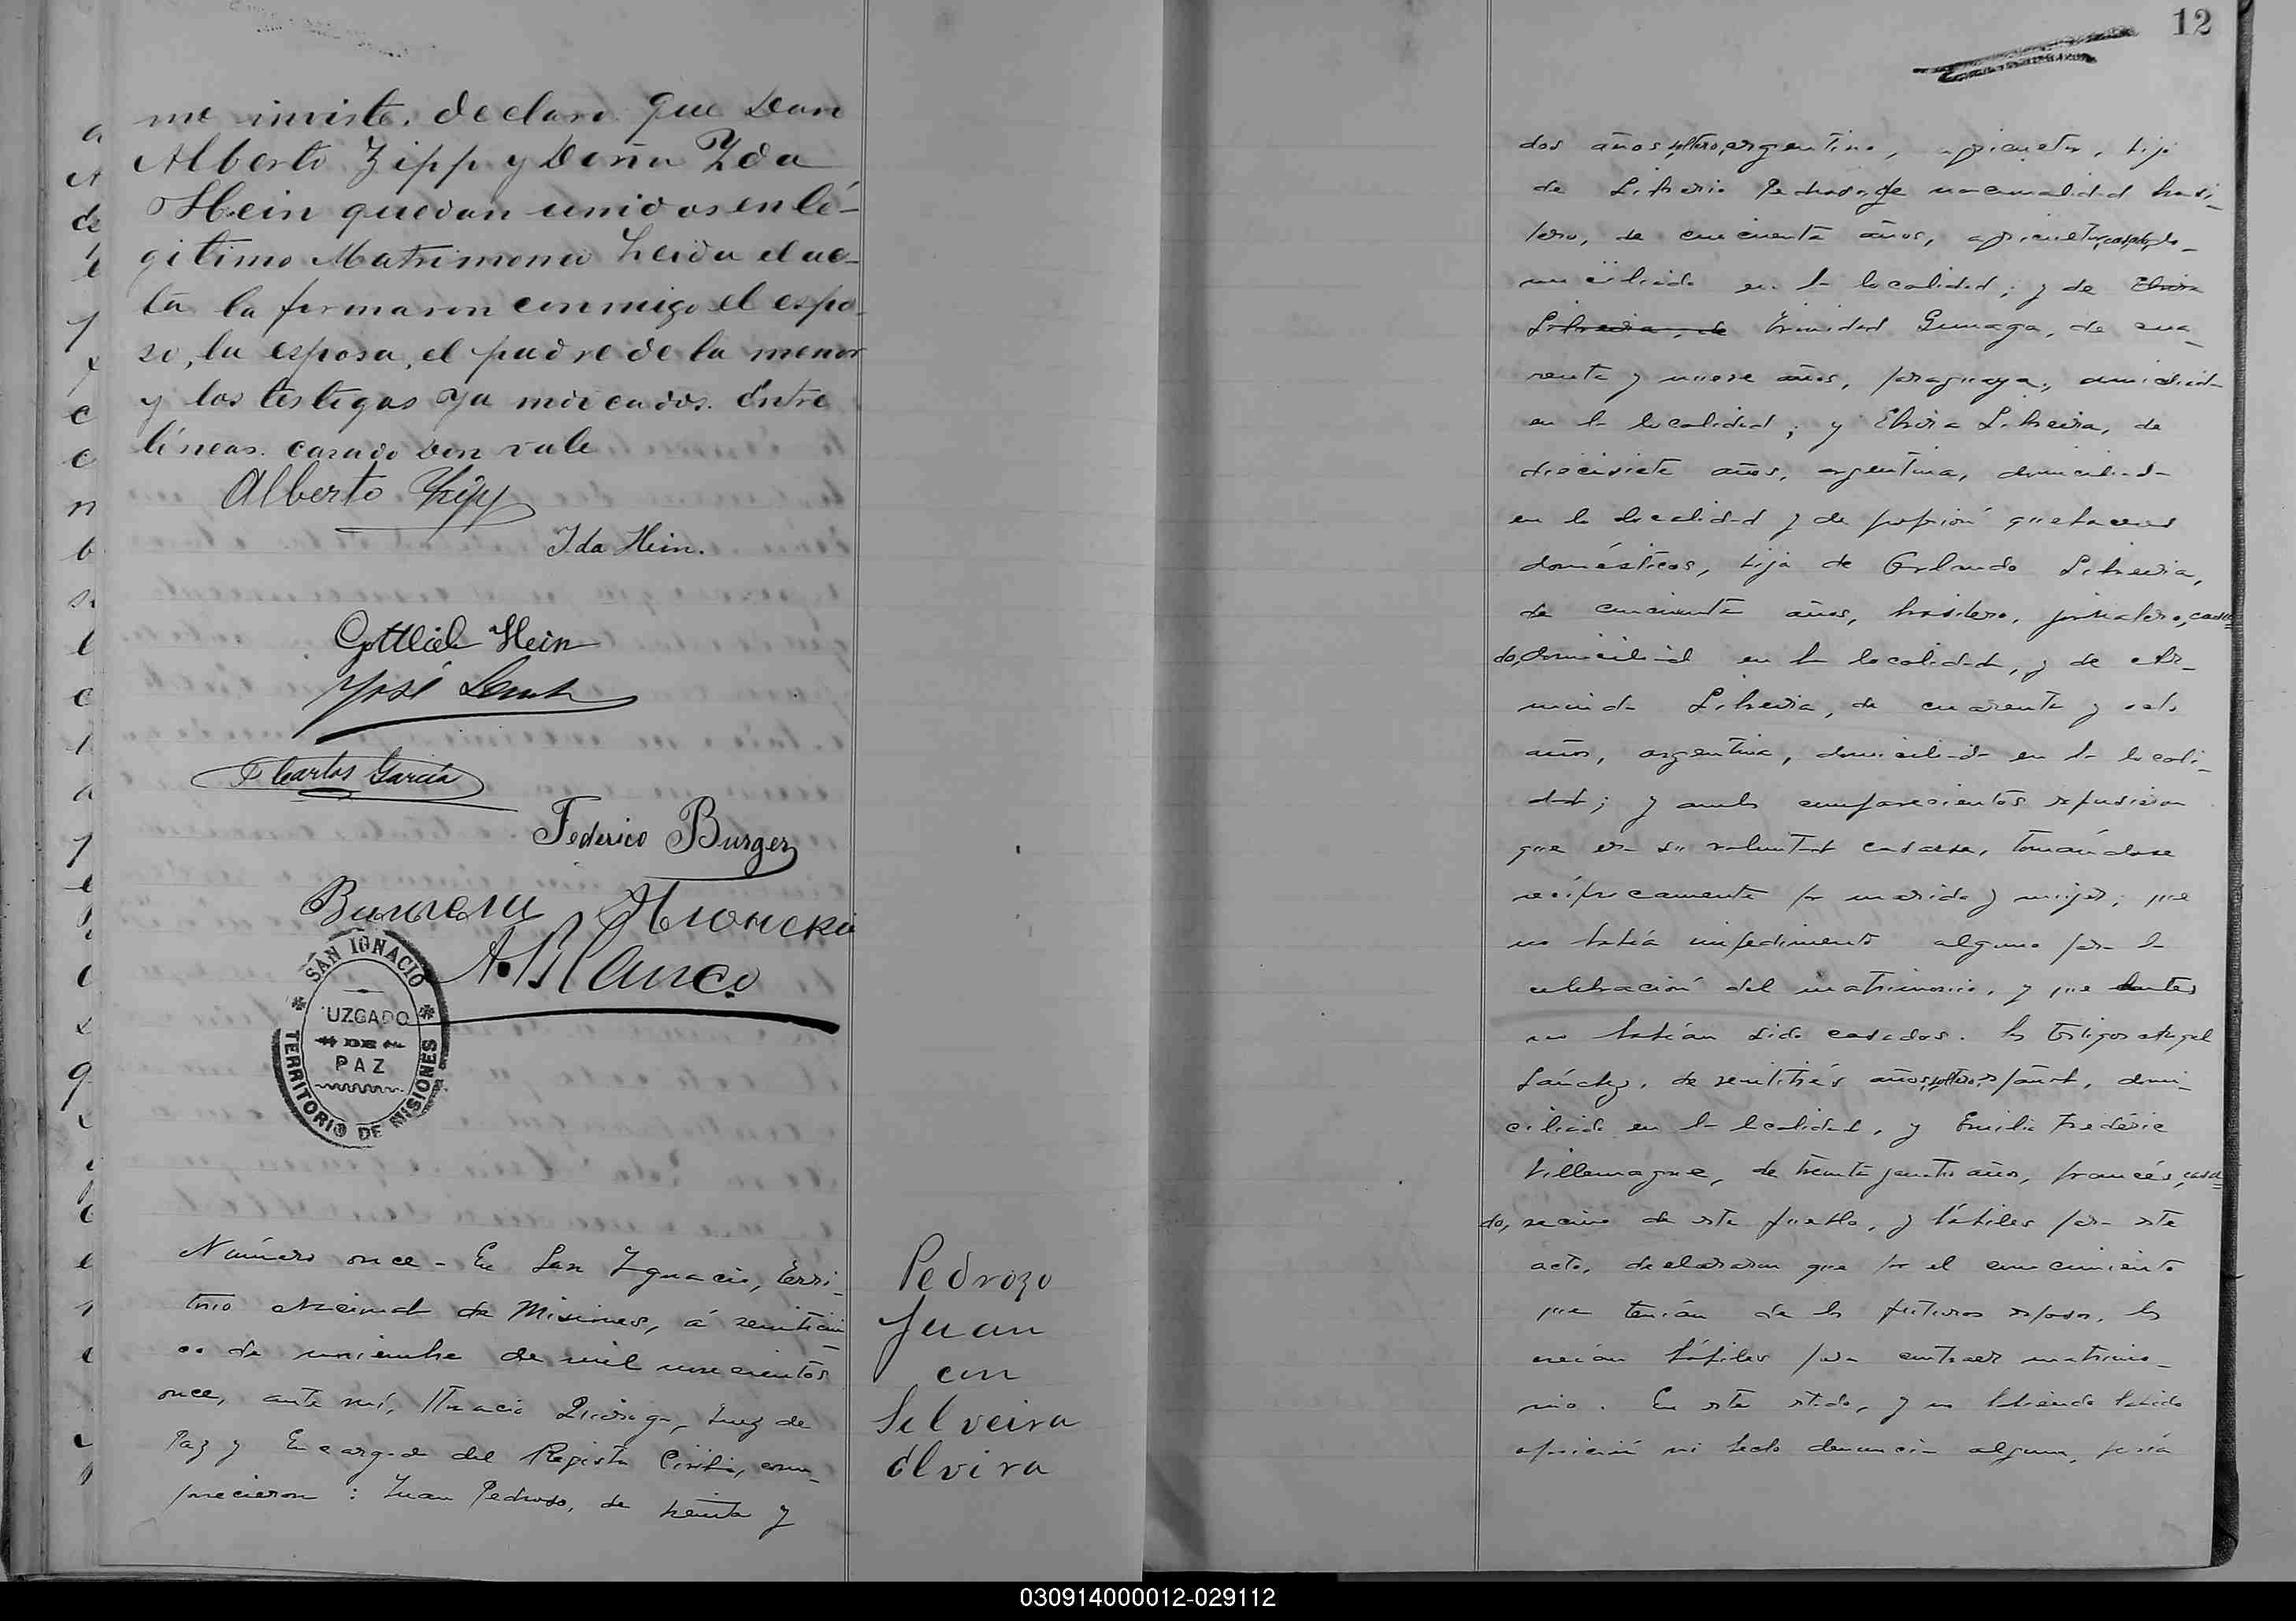 me inviste, declaro que Don
Alberto Zipp y Doña Yda
Hein quedan unidos en lé-
gitimo Matrimonio Leida el ac-
ta la firmaron conmigo el espo-
so, la esposa, el padre de la menor
y los testigos ya indicados. Entre
líneas. casado Don vale
Alberto Zipp
Ida Hein.
Gottlieb Hein
José
F Carlos García
Federico Burger
A. Blanco
SAN IGNACIO
UZGADO
DE
PAZ
TERRITORIO DE MISIONES
Número once - En San Ygnacio, Terri-
torio Nacional de Misiones, á veinticin
co de noviembre de mil novecientos
once, ante mí, Juez de
Paz y Encargado del Registro Civil, com-
parecieron: Juan Pedroso, de treinta y
Pedrozo
Juan
con
Silveira
Elvira
12
dos años, soltero, argentino, agricultor, hijo
de Pedroso, de nacionalidad brasi-
lero, de cincuenta años, agricultor, casado, do-
miciliado en la localidad; y de Elvira
Silveira, de Trinidad de cua-
renta y nueve años, paraguaya, domiciliada
en la localidad; y Elvira Silveira, de
diecisiete años, argentina, domiciliada
en la localidad y de profesión quehaceres
domésticos, hija de Orlando Silveira,
de cincuenta años, brasilero, jornalero, casa=
do, domiciliado en la localidad, y de Ar-
minda Silveira, de cuarenta y seis
años, argentina, domiciliada en la locali-
dad; y ambos comparecientes expusieron
que era su voluntad casarse, tomándose
recíprocamente por marido y mujer; que
no había impedimento alguno para la
celebración del matrimonio, y que antes
no habían sido casados. los testigos Angel
Sánchez, de veintitrés años, soltero, español, domi-
ciliado en la localidad, y Emilio Frédéric
Villemagne, de treinta y cuatro años, francés, casa=
do, vecino de este pueblo, y hábiles para este
acto, declararon que por el conocimiento
que tenían de los futuros esposos, los
creían hábiles para contraer matrimo-
nio. En este estado, y no habiendo habido
oposición ni hecho denuncia alguna, previa
030914000012-029112